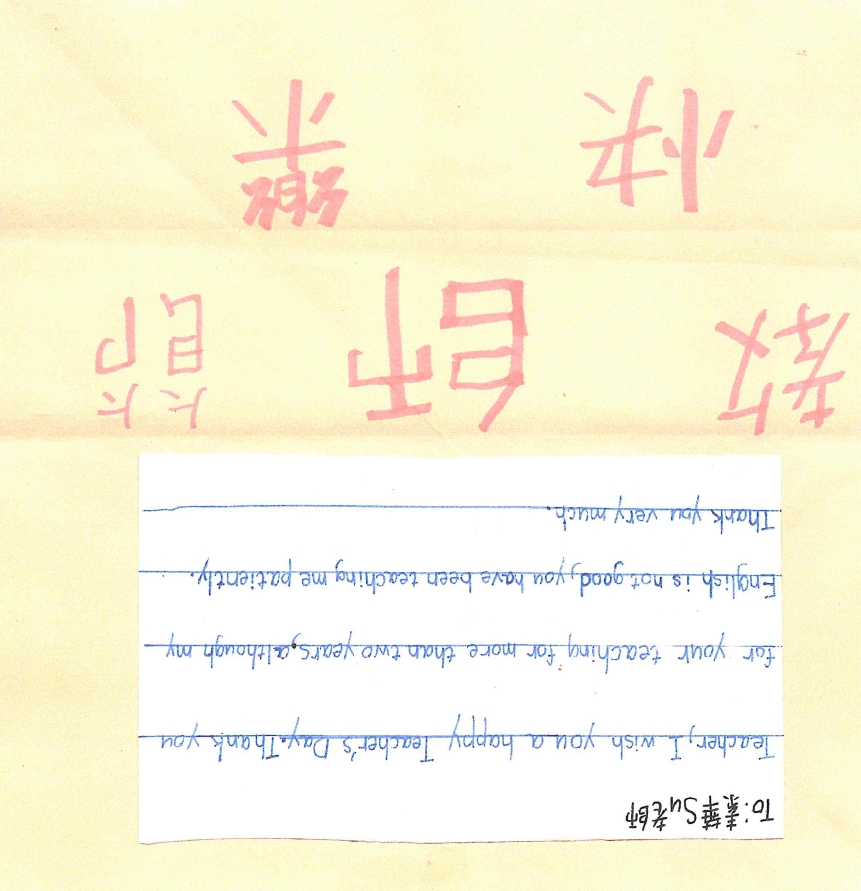 To:素華Su老師
Teacher, I wish you a happy Teacher's Day. Thank you
for your teaching for more than two years, although my
English is not good, you have been teaching me patiently.
Thank you very much.
教師節
快樂